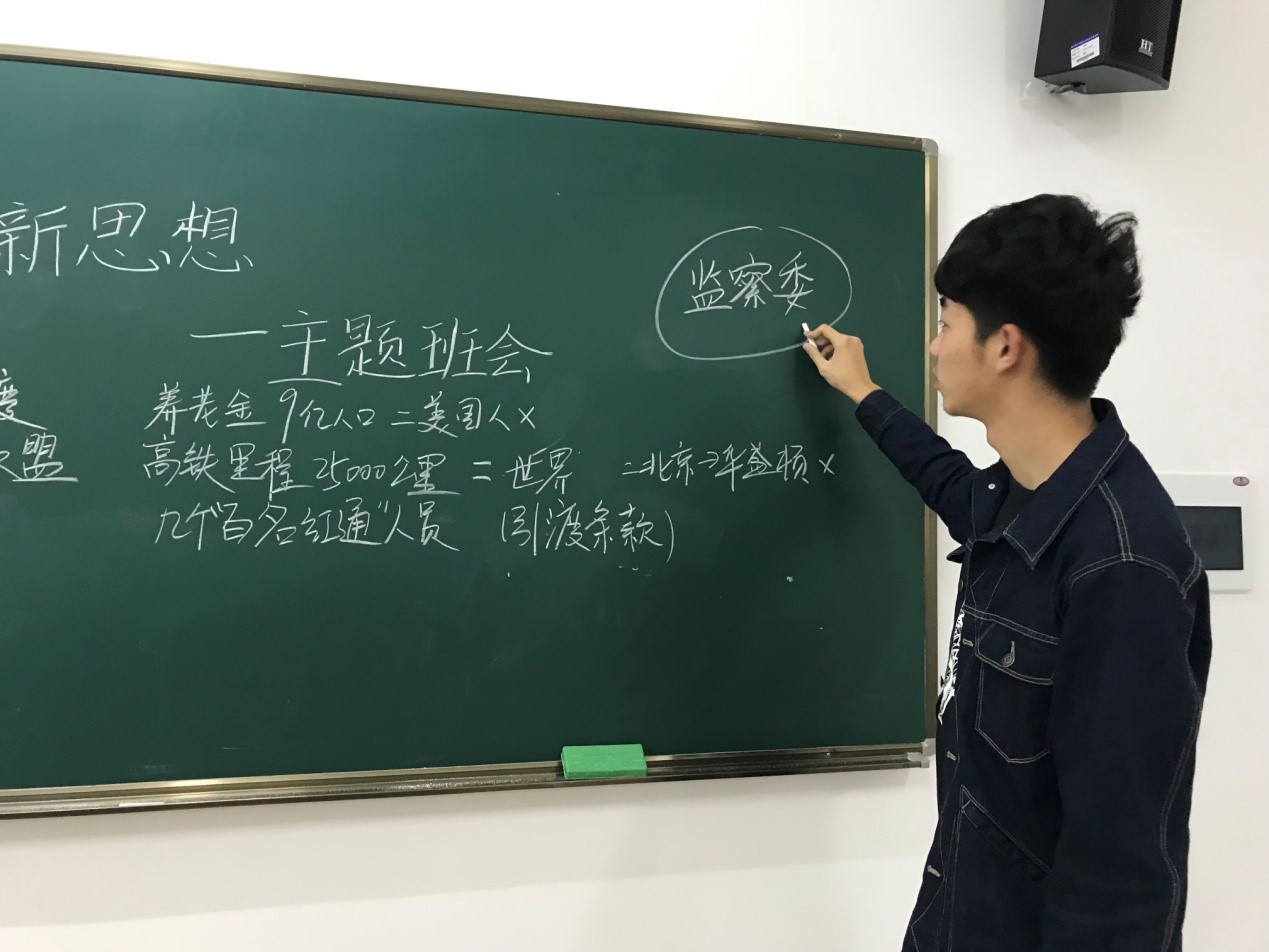 新思想
一主题班会
监察委
养老金 9亿人口 =美国人×
高铁里程 25000公里 = 世界 =北京→华盛顿×
九个"百名红通"人员 (引渡条款)
度
盟
HT